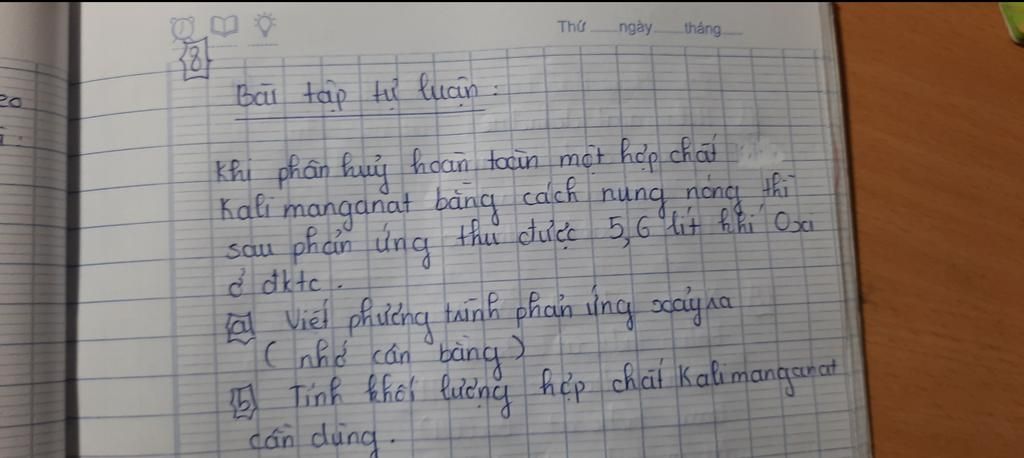 Thứ ngày tháng
8
Bài tập tự luận:
Khi phân huỷ hoàn toàn một hợp chất
Kali manganat bằng cách nung nóng thì
sau phản ứng thu được 5,6 lít khí Oxi
ở đktc.
a Viết phương trình phản ứng xảy ra
(nhớ cân bằng)
b Tính khối lượng hợp chất Kalimanganat
cần dùng.